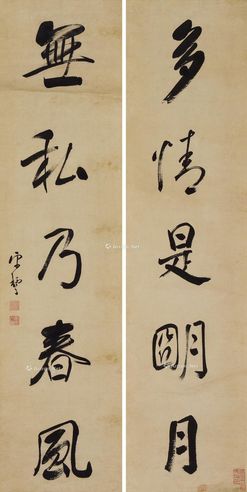 多情是明月
無私乃春風
宋犖